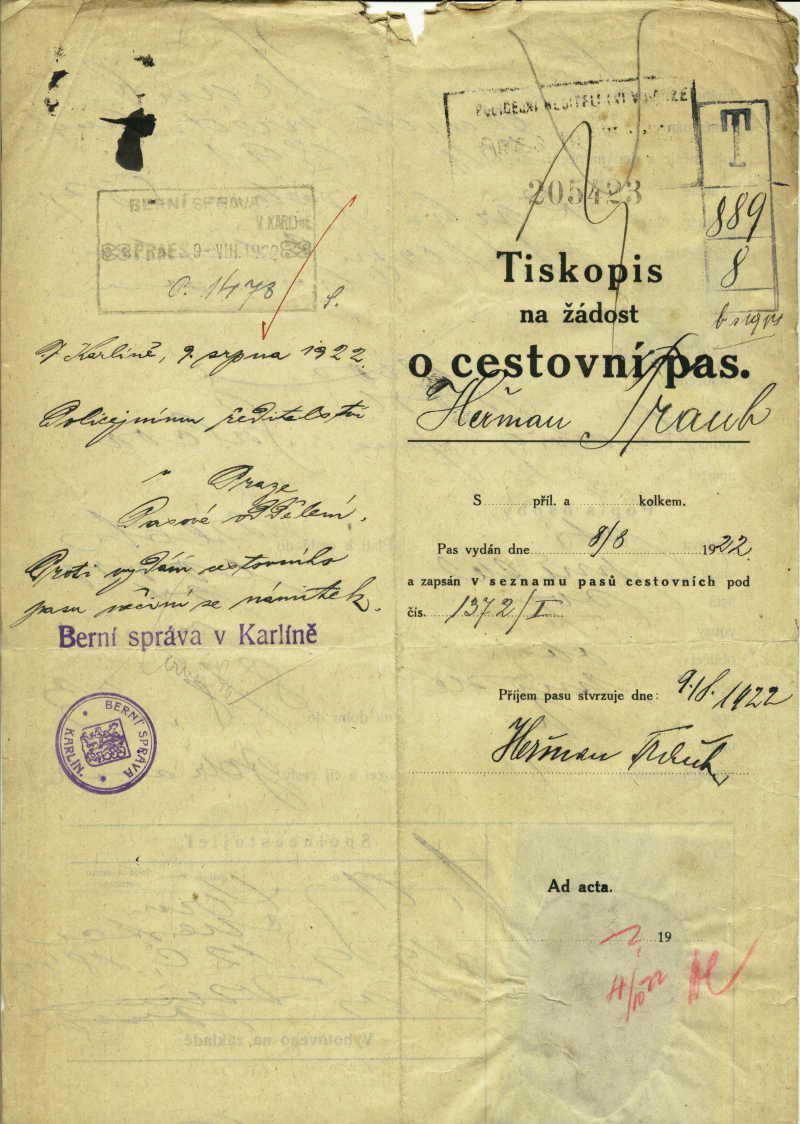 BERNÍ SPRÁVA
V KARLÍNĚ
PRAES. 9-VIII.1922
č. 1473
V Karlíně, 9. srpna 1922.
Policejnímu ředitelství
v Praze
Pasové oddělení.
Proti vydání cestovního
pasu nečiní se námitek.
Berní správa v Karlíně
BERNÍ SPRÁVA
KARLÍN.
POLICEJNÍ ŘEDITELSTVÍ V PRAZE
205423
T
889
8
Tiskopis
na žádost
o cestovní pas.
Heřman Traub
S příl. a kolkem.
Pas vydán dne 8/8 1922.
a zapsán v seznamu pasů cestovních pod
čís. 1372/I
Příjem pasu stvrzuje dne: 9./8. 1922
Heřman Traub
Ad acta.
19
4/10 22
Spolucestující.
Vyhotoveno na základě